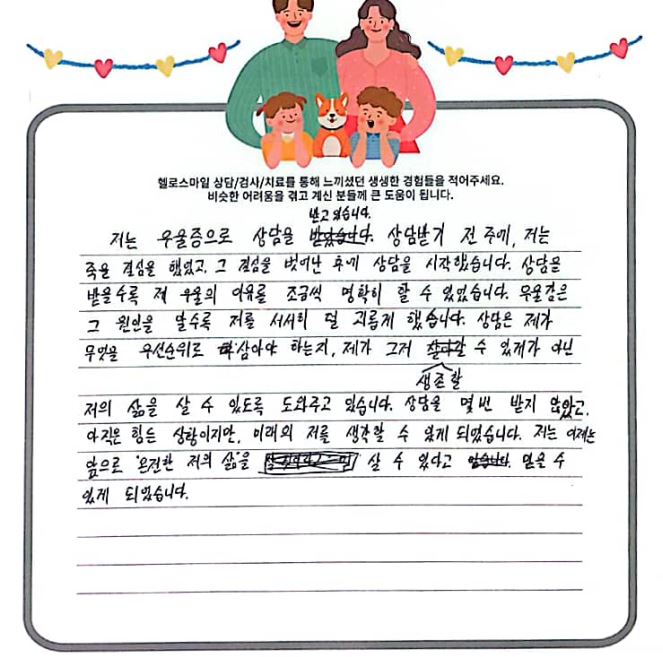 헬로스마일 상담/검사/치료를 통해 느끼셨던 생생한 경험들을 적어주세요.
비슷한 어려움을 겪고 계신 분들께 큰 도움이 됩니다.
받고 있습니다.
저는 우울증으로 상담을 받았습니다. 상담받기 전 주에, 저는
죽을 결심을 했었고, 그 결심을 벗어난 후에 상담을 시작했습니다. 상담을
받을수록 제 우울의 이유를 조금씩 명확히 할 수 있었습니다. 우울감은
그 원인을 알수록 저를 서서히 덜 괴롭게 했습니다. 상담은 제가
무엇을 우선순위로 삼아야 하는지, 제가 그저 수 있게가 아닌
생존할
저의 삶을 살 수 있도록 도와주고 있습니다. 상담을 몇 번 받지 않았고,
아직은 힘든 상황이지만, 미래의 저를 생각할 수 있게 되었습니다. 저는 이제는
앞으로 '온전한 저의 삶'을 살 수 있다고 믿을 수
있게 되었습니다.